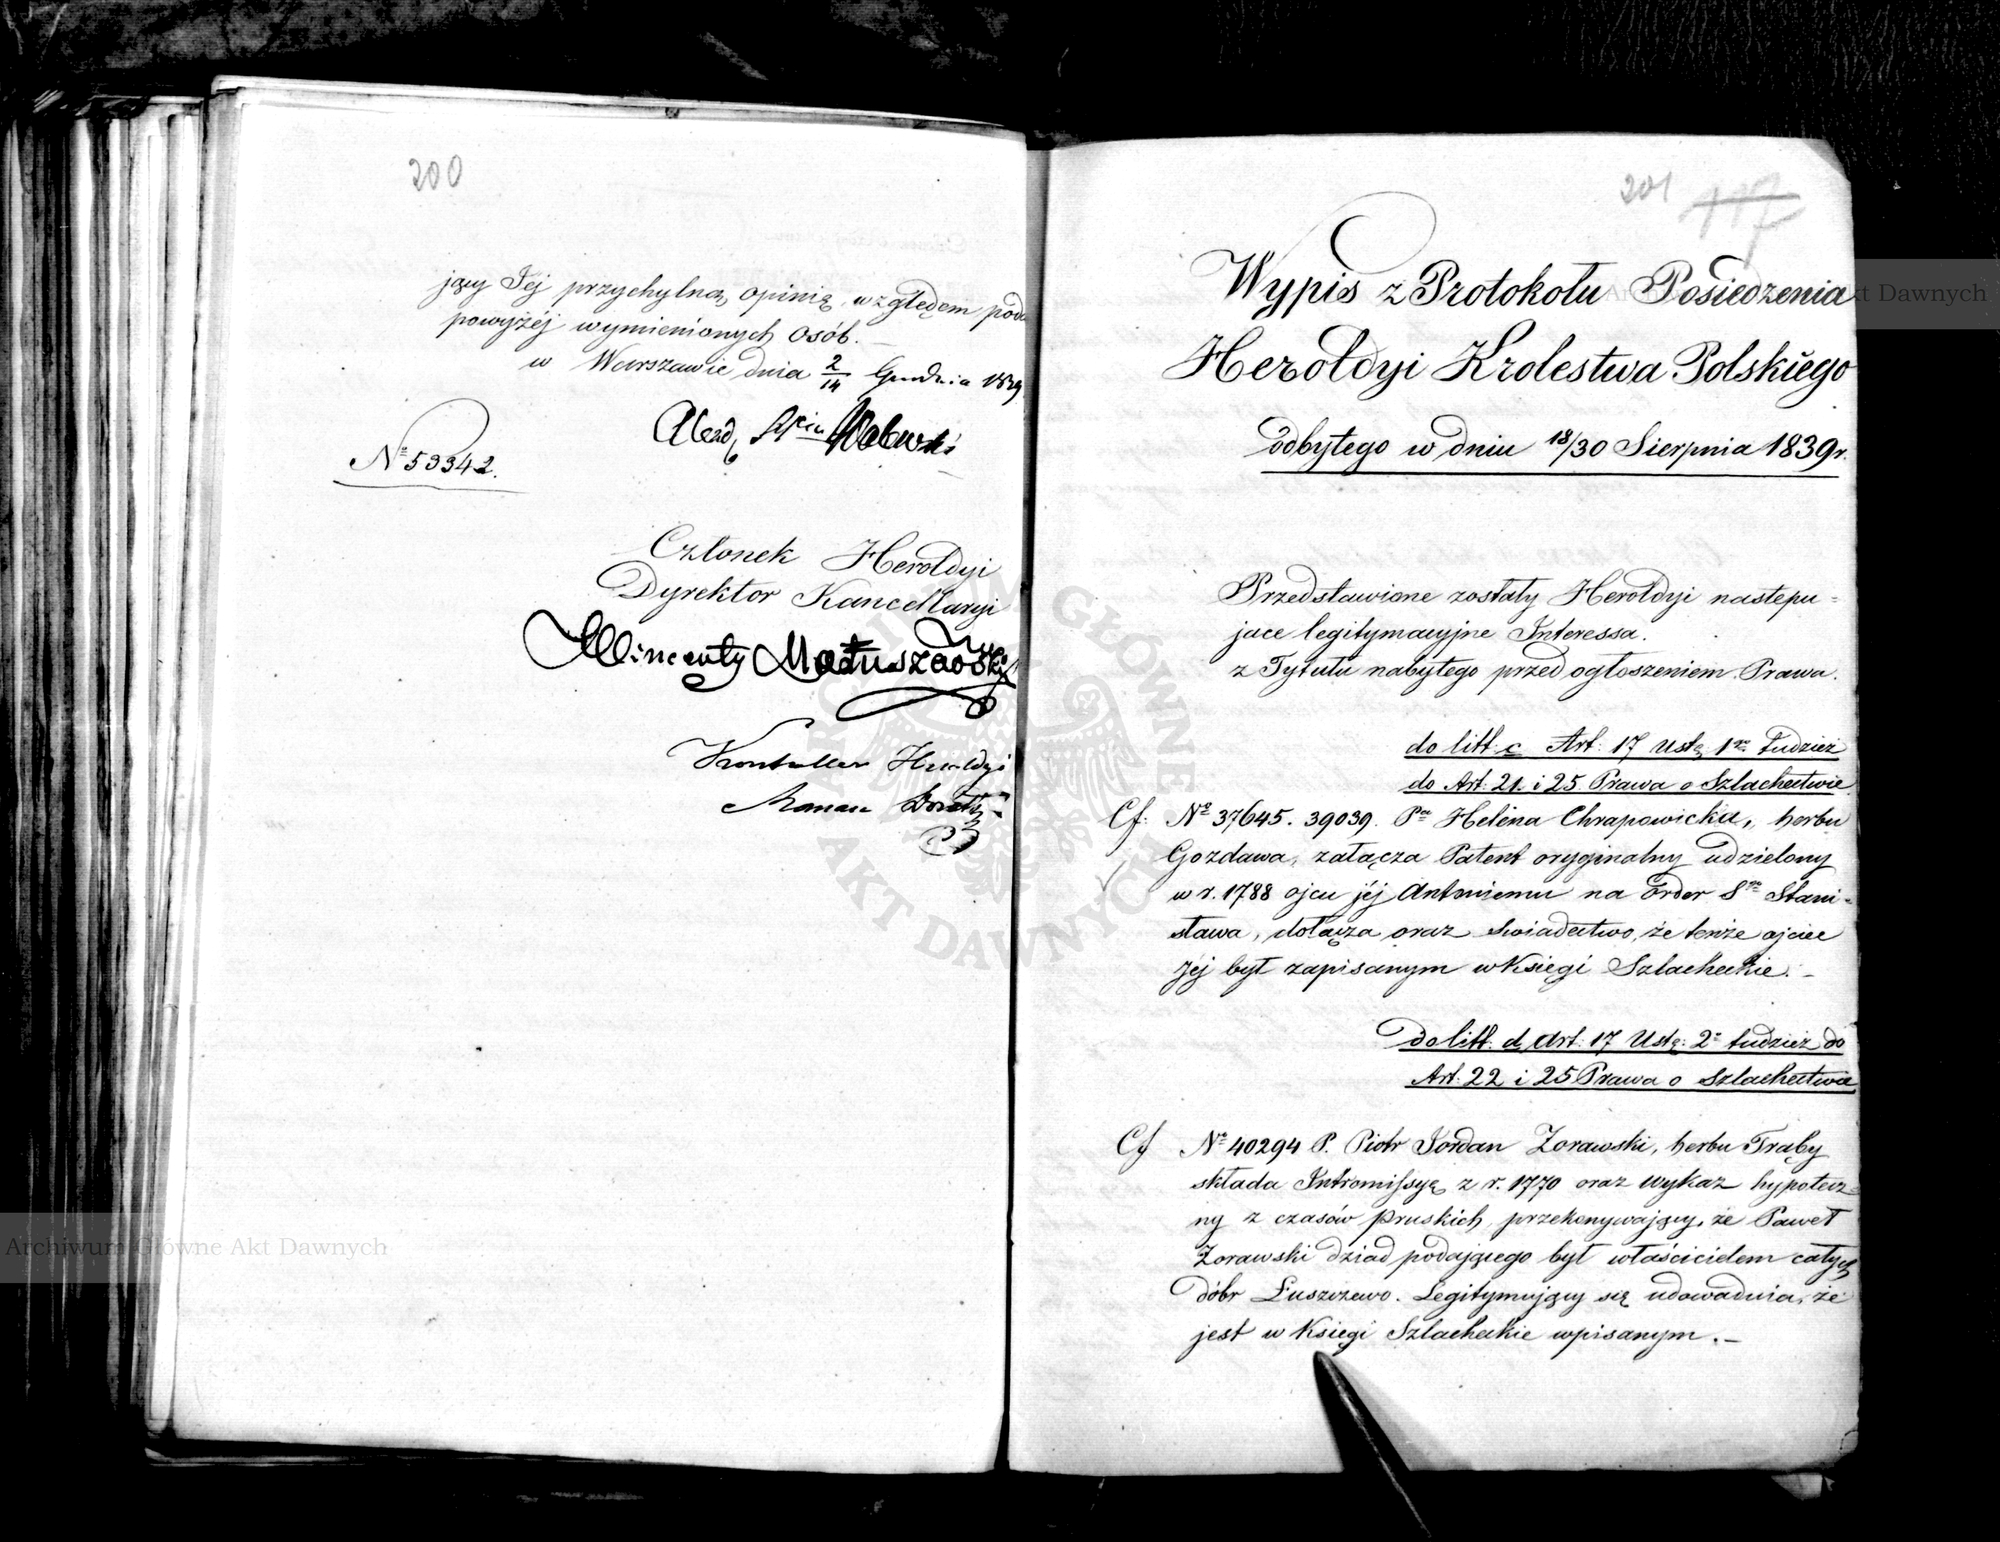 200
jący Jéj przychylną opinię, względem poda
powyżéj wymienionych osób.
w Warszawie dnia 2/14 Grudnia 1839
Nº 53342.
Członek Heroldyi
Dyrektor Kancellaryi
Wincenty Matuszewski
Kontroller Heroldyi
201 117
Wypis z Protokołu Posiedzenia
Heroldyi Krolestwa Polskiego
odbytego w dniu 18/30 Sierpnia 1839 r.
Przedstawione zostały Heroldyi nastepu=
jace legitymacyjne Interessa.
z Tytułu nabytego przed ogłoszeniem Prawa.
do litt: c Art: 17 Ustę 1º Tudzież
do Art: 21. i 25 Prawa o Szlachectwie
Cf: Nº 37645. 39039. Pna Helena Chrapowicka, herbu
Gozdawa, załącza Patent oryginalny udzielony
w r. 1788 ojcu jéj Antoniemu na Order Sgo Stani=
sława, dołącza oraz świadectwo, że tenże ojciec
jéj był zapisanym w Księgi Szlacheckie. –
Do litt: d Art: 17 Ustę: 2º tudzież do
Art: 22 i 25 Prawa o Szlachectwie
Cf Nº 40294 P. Piotr Jordan Zorawski, herbu Traby
składa Intromissyę z r. 1770 oraz wykaz hypotecz=
ny z czasów Pruskich, przekonywający, że Paweł
Zorawski dziad podającego był właścicielem całych
dóbr Łuszczewo. Legitymujący się udowadnia, że
jest w Księgi Szlacheckie wpisanym. –
Archiwum Główne Akt Dawnych
ARCHIWUM GŁÓWNE AKT DAWNYCH